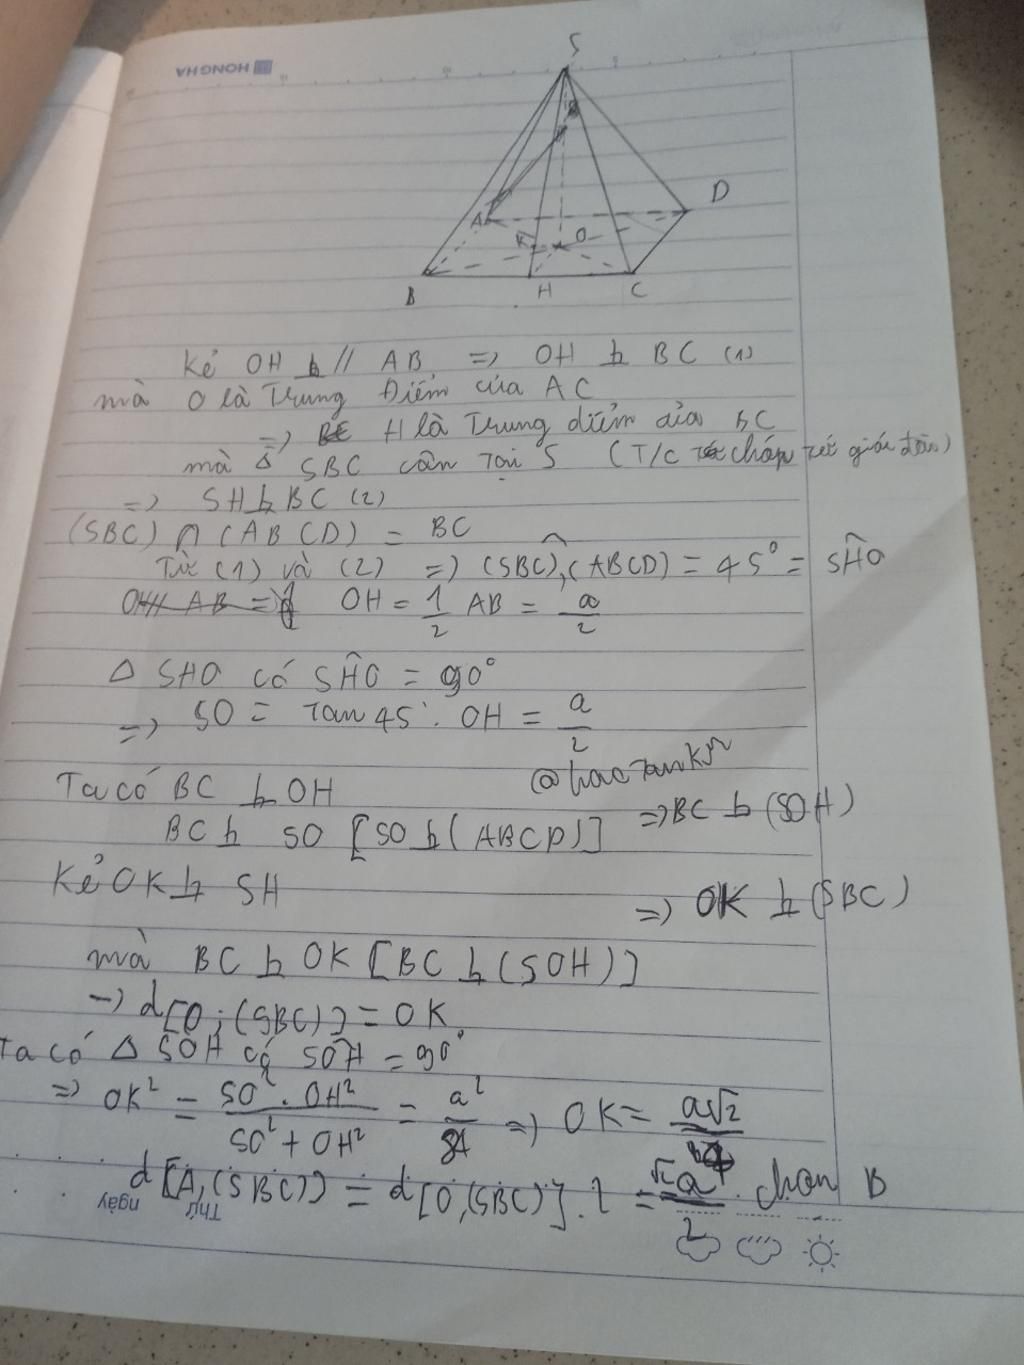 HONG HA
S
A
D
K
O
B
H
C
Kẻ OH // AB => OH ⊥ BC (1)
mà O là Trung Điểm của AC
=> H là Trung điểm của BC
mà Δ SBC cân Tại S (T/c chóp tứ giác đều)
=> SH ⊥ BC (2)
(SBC) ∩ (ABCD) = BC
Từ (1) và (2) => (SBC),(ABCD) = 45° = SĤO
OH // AB => OH = 1/2 AB = a/2
Δ SHO có SĤO = 90°
=> SO = Tan 45°. OH = a/2
Ta có BC ⊥ OH
BC ⊥ SO [SO ⊥ (ABCD)] => BC ⊥ (SOH)
Kẻ OK ⊥ SH
=> OK ⊥ (SBC)
mà BC ⊥ OK [BC ⊥ (SOH)]
-> d[O;(SBC)] = OK
Ta có Δ SOH có SÔH = 90°
=> OK² = SO². OH² / SO² + OH² = a²/8 => OK = a√2/4
d[A,(SBC)] = d[O,(SBC)]. 2 = √2a/2. chọn B
ngày
Thứ